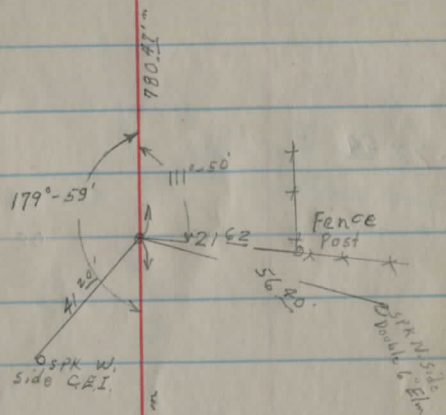 780.47'±
179°-59'
111°-50'
Fence
Post
21 62
56 40.
41 20'
SPK W.
Side C.E.I.
SPK N. Side
Double 6" Elm